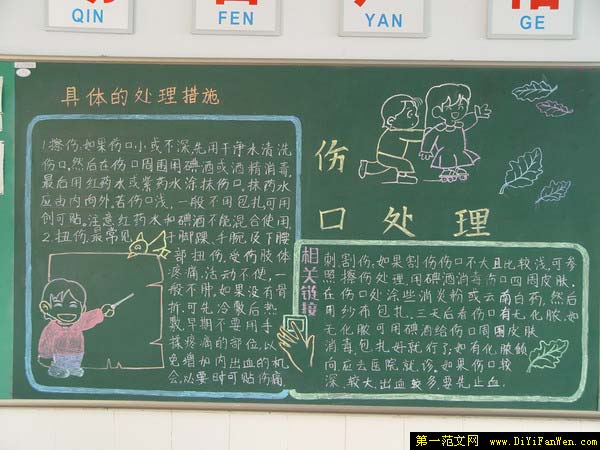 QIN
FEN
YAN
GE
具体的处理措施
1.擦伤:如果伤口小或不深,先用干净水清洗
伤口,然后在伤口周围用碘酒或酒精消毒,
最后用红药水或紫药水涂抹伤口,抹药水
应由内向外,若伤口浅,一般不用包扎,可用
创可贴。注意红药水和碘酒不能混合使用
2.扭伤:最常见于脚踝、手腕及下腰
部扭伤,受伤肢体
疼痛,活动不便,一
般不肿,如果没有骨
折,可先冷敷后热
敷,早期不要用手
揉疼痛的部位,以
免增加内出血的机
会,必要时可贴伤痛
伤
口处理
相关链接
刺、割伤:如果割伤伤口不大且比较浅,可参
照擦伤处理,用碘酒消毒伤口四周皮肤,
在伤口处涂些消炎粉或云南白药,然后
用纱布包扎,三天后看伤口有无化脓,如
无化脓可用碘酒给伤口周围皮肤
消毒,包扎好就行了,如有化脓倾
向,应去医院就诊。如果伤口较
深、较大,出血较多,要先止血.
第一范文网 www.DiYiFanWen.com